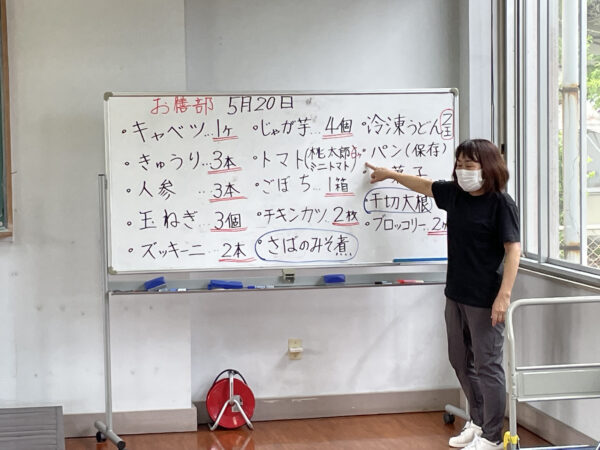 お膳部 5月20日
・キャベツ…1ケ
・きゅうり…3本
・人参 …3本
・玉ねぎ…3個
・ズッキーニ…2本
・じゃが芋…4個
・トマト(桃太郎
ミニトマト)
・ごぼち…1箱
・チキンカツ…2枚
・さばのみそ煮
・冷凍うどん 2玉
・パン(保存)
菓子
干切大根
・ブロッコリー…2